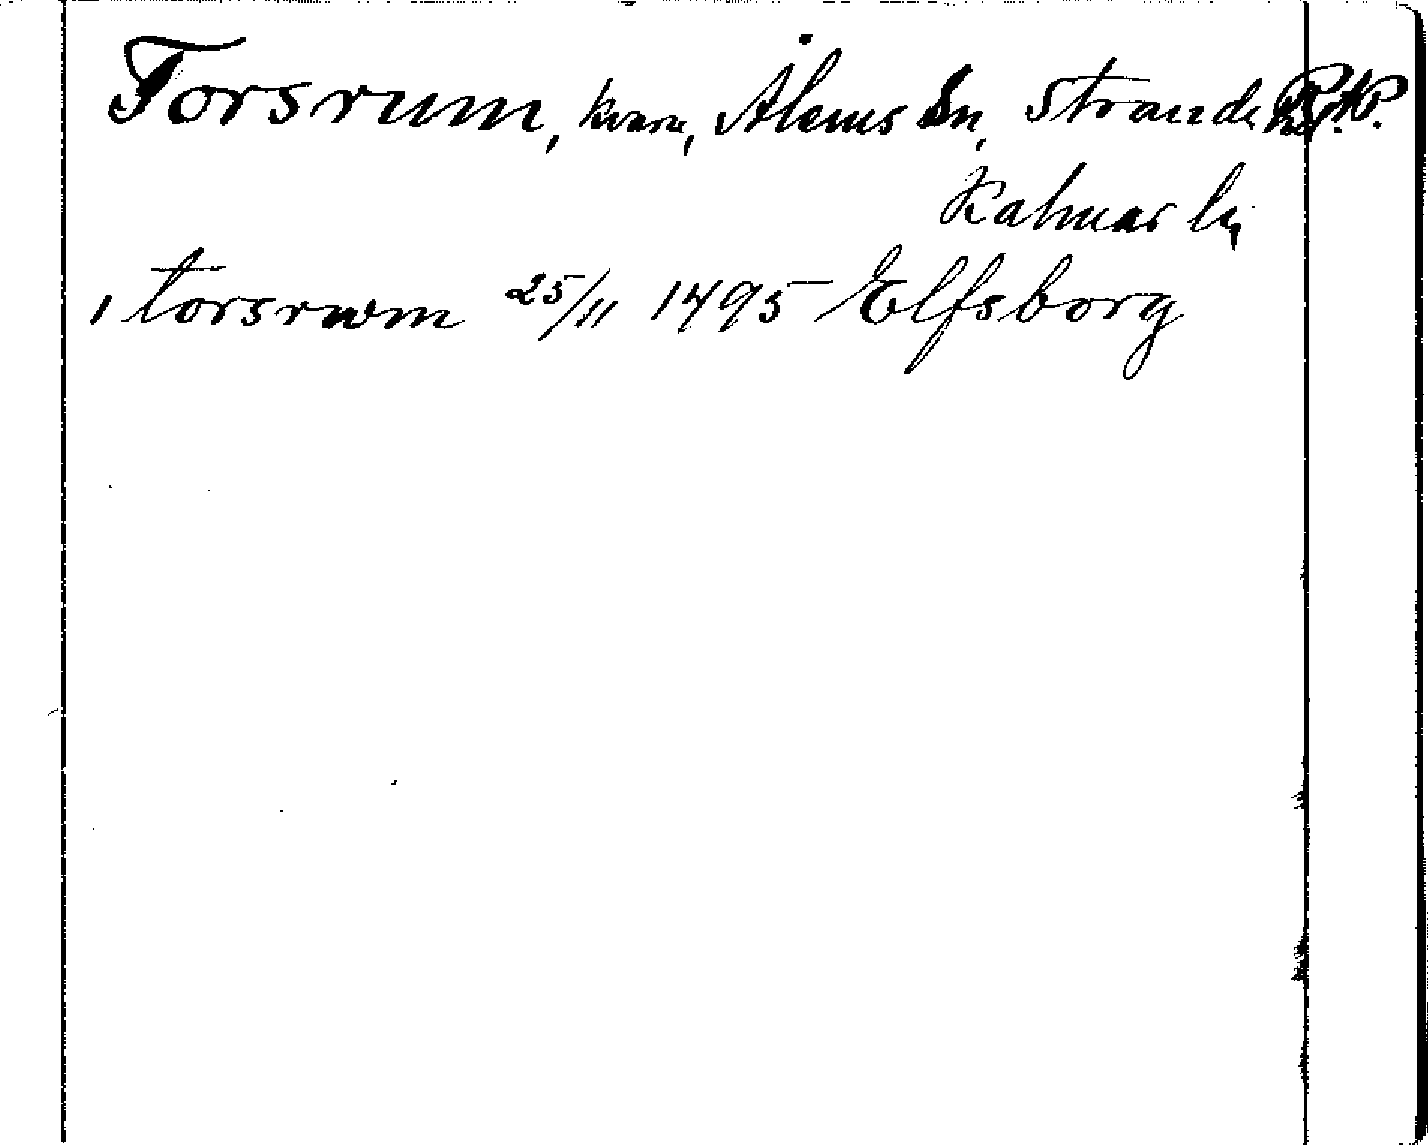 Torsrum, kvarn, Ålems sn, Stranda hd.
Kalmar län
i torsrwm 25/11 1495 Elfsborg